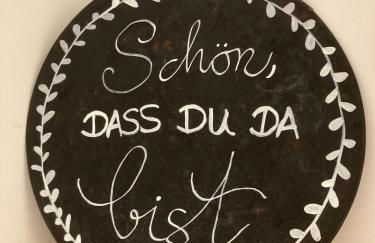 Schön,
DASS DU DA
bist